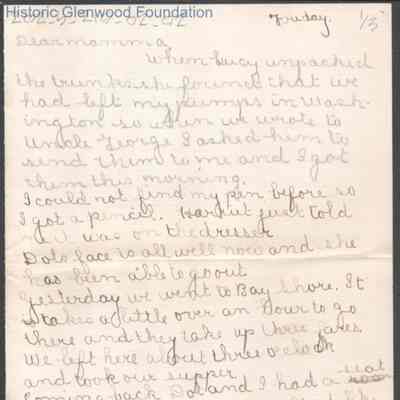 Historic Glenwood Foundation
Friday. 1/5
Dear mamma,
When Lucy unpacked
the trunks she found that we
had left my pumps in Wash-
ington so when we wrote to
Uncle George I asked him to
send them to me and I got
them this morning.
I could not find my pen before so
I got a pencil. Harriet just told
it was on the dresser
Dots face is all well now and she
has been able to go out
Yesterday we went to Bay Shore. It
takes a little over an hour to go
there and they take up three fares.
We left here about three o'clock
and took our supper
coming back Dot and I had a seat